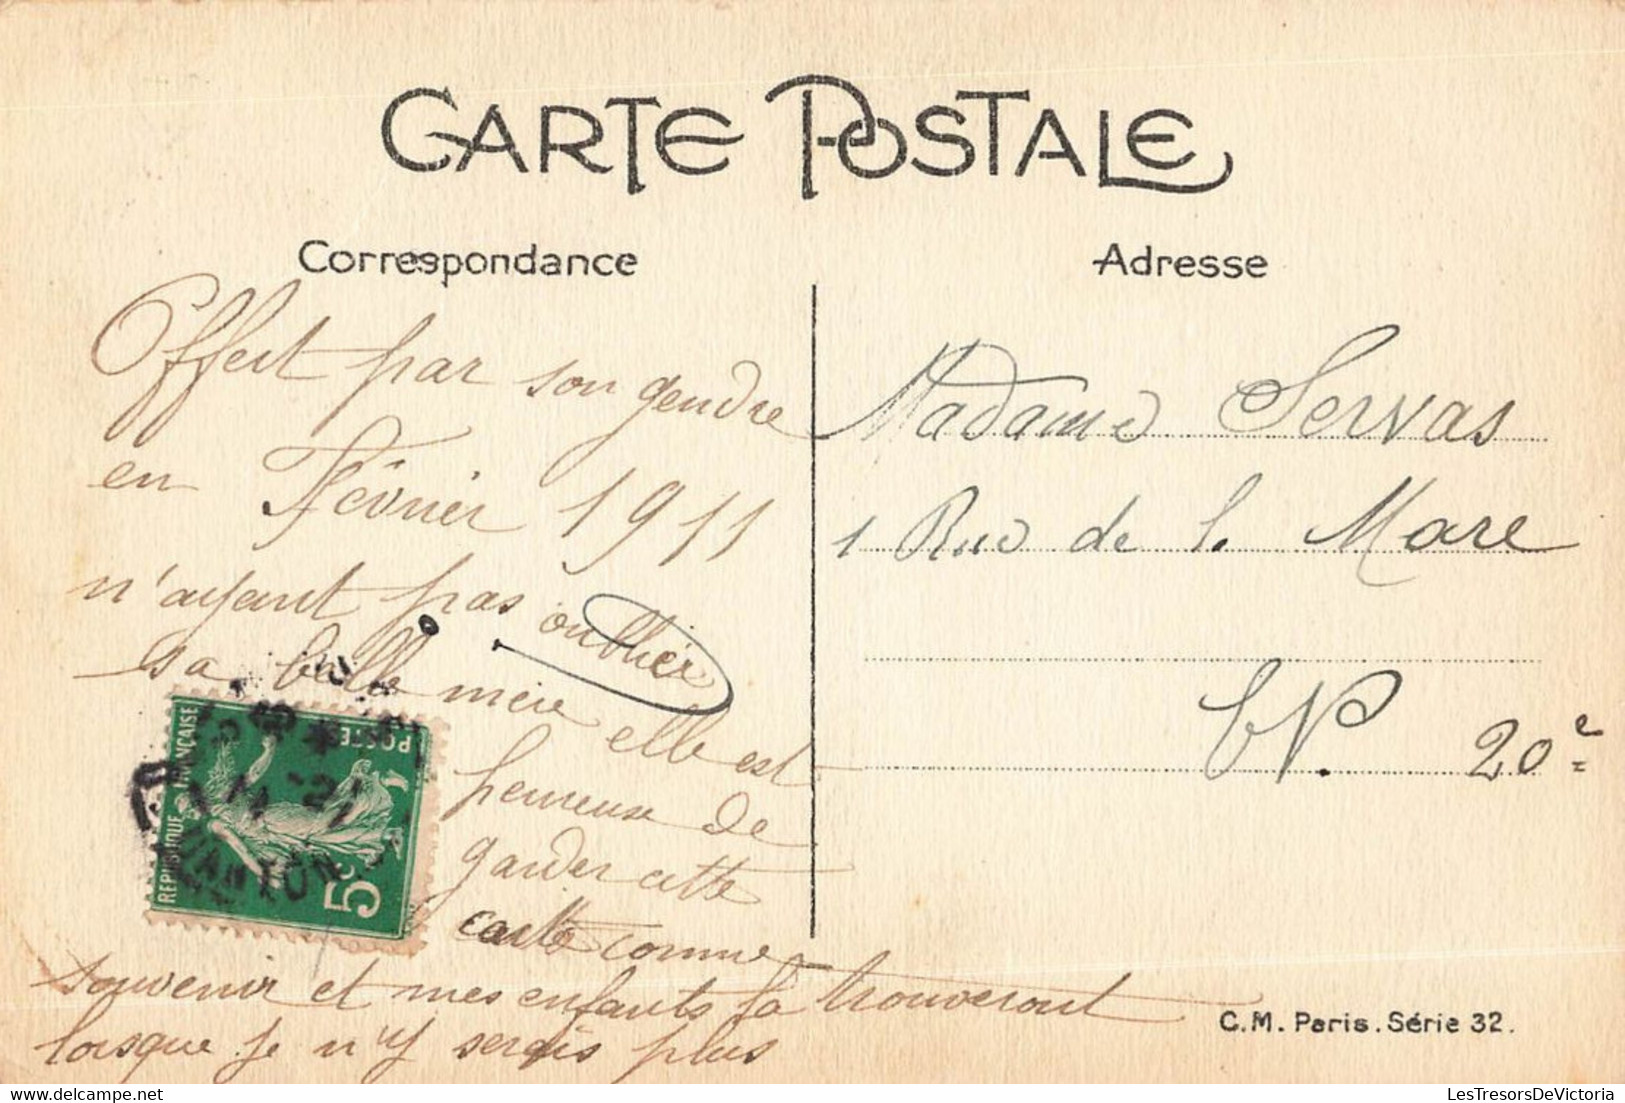 CARTE POSTALE
Correspondance
Offert par son gendre
en Février 1911
n'ayant pas oublier
sa belle mère elle est
heureuse de
garder cette
carte comme
souvenir et mes enfants la trouveront
lorsque je n'y serais plus
Adresse
Madame Servas
1 Rue de la Mare
EV. 20e
REPUBLIQUE FRANÇAISE
POSTES
5c
C.M. Paris. Série 32.
LesTresorsDeVictoria.com